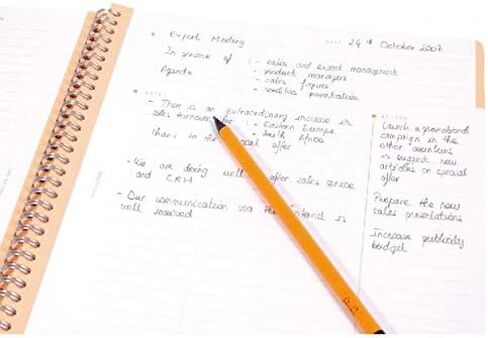 Export Meeting
24th October 2007
In presence of : - sales and export management
- product managers
Agenda
- sales figures
- presentation
- There is an extraordinary increase in
sales turnover for : - Eastern Europe
- South Africa
thanks to the special offer
- We are doing well after sales service
and CRM
- Our communication via the internet is
well received
Launch a promotional
campaign in the
other countries
suggest new
articles on special
offer
Prepare the new
sales presentations
Increase publicity
budget